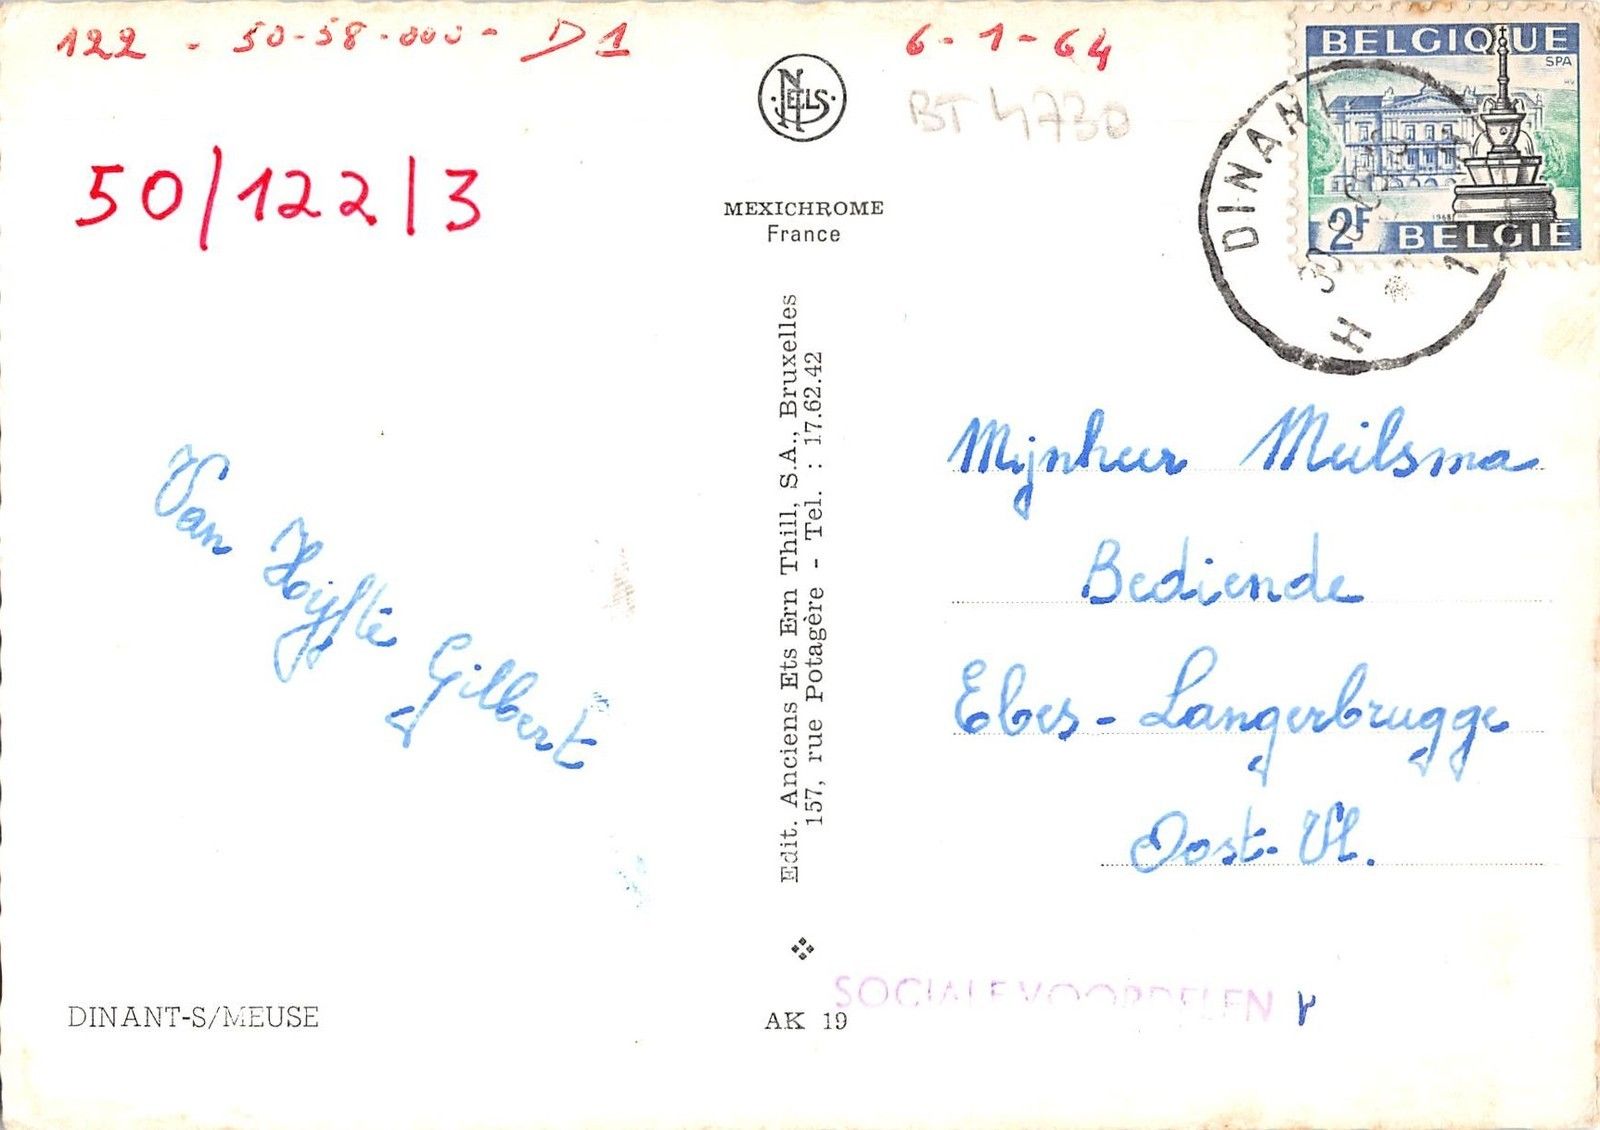 122 - 50-58-000- D1
6-1-64
BT 4730
50/122/3
NELS
MEXICHROME
France
BELGIQUE
SPA
1968
2F
BELGIE
DINANT
H
Edit. Anciens Ets Ern Thill, S.A., Bruxelles
157, rue Potagère - Tel. : 17.62.42
Van Hoijfte Gilbert
Mijnheer Meilsma
Bediende
Ebes - Langerbrugge
Oost-Vl.
DINANT-S/MEUSE
AK 19
SOCIALE VOORDELEN